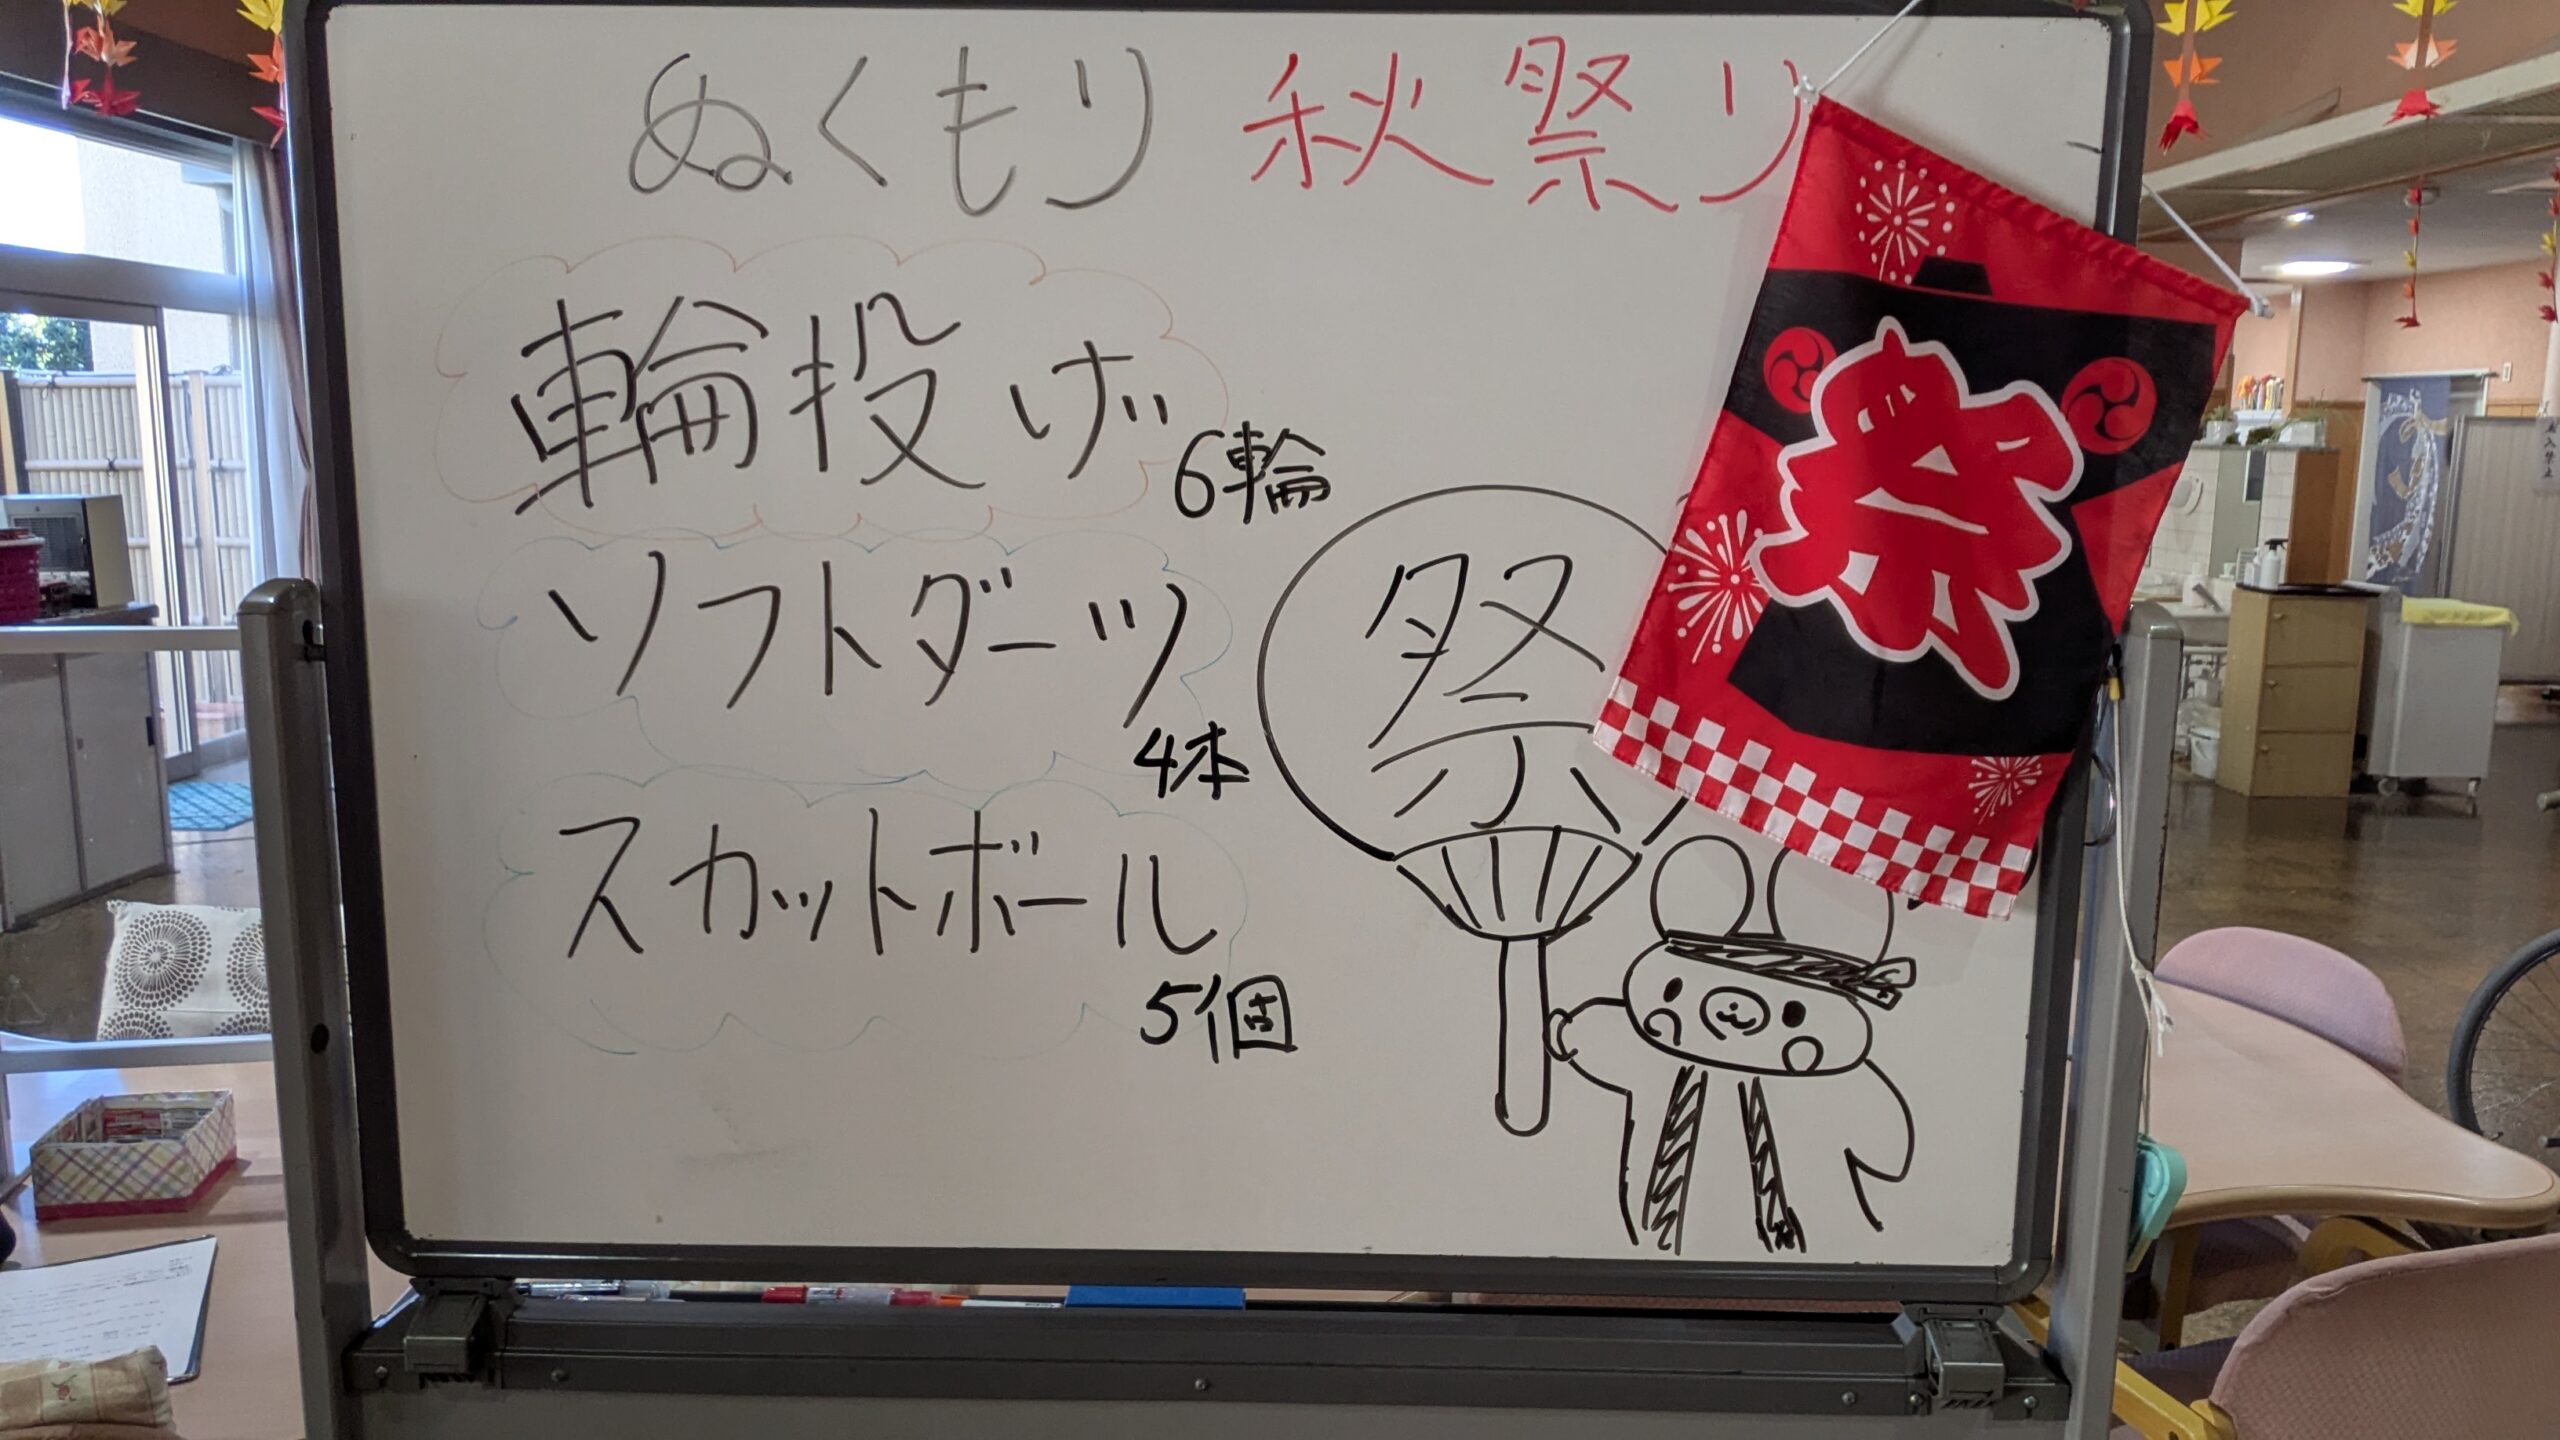 ぬくもり 秋祭り
輪投げ
6輪
ソフトダーツ
4本
スカットボール
5個
祭
祭